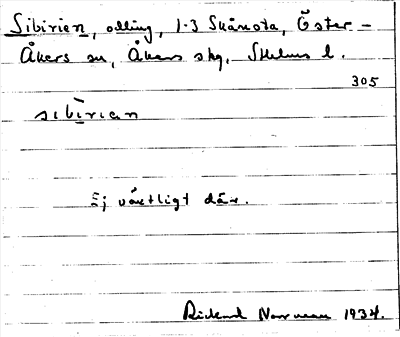 Sibirien, odling, 1-3 Skånsta, Öster-
Åkers sn, Åkers skg, Sthlms l.
305
sibīrien
Ej växtligt där.
Rickard Norrman 1934.